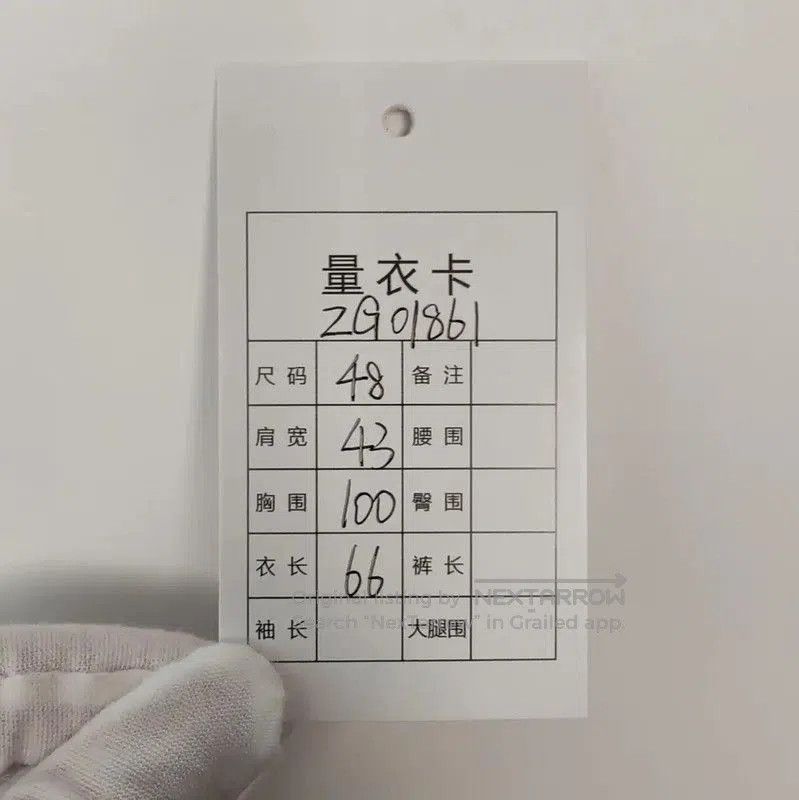 量衣卡
ZG01861
尺码 48 备注
肩宽 43 腰围
胸围 100 臀围
衣长 66 裤长
袖长 大腿围
Original listing by NEXTARROW
Search "NexTarrow" in Grailed app.